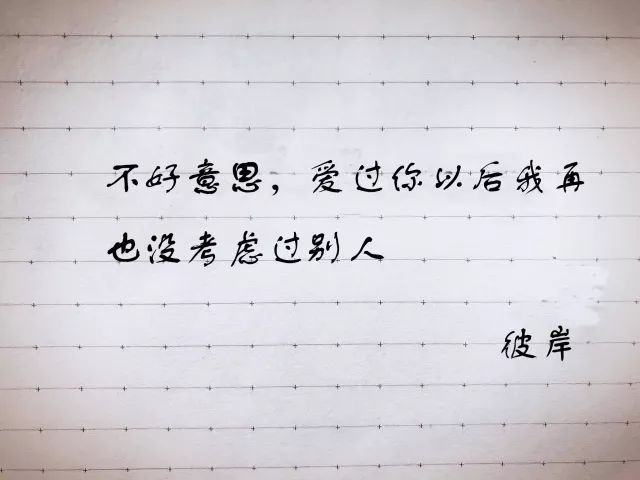 不好意思，爱过你以后我再
也没考虑过别人
彼岸